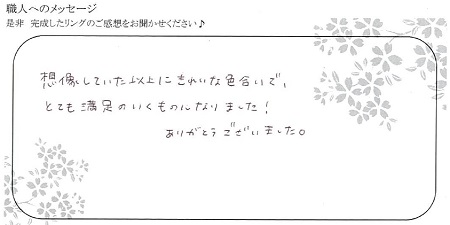 職人へのメッセージ
是非 完成したリングのご感想をお聞かせください♪
想像していた以上にきれいな色合いで、
とても満足のいくものになりました!
ありがとうございました。